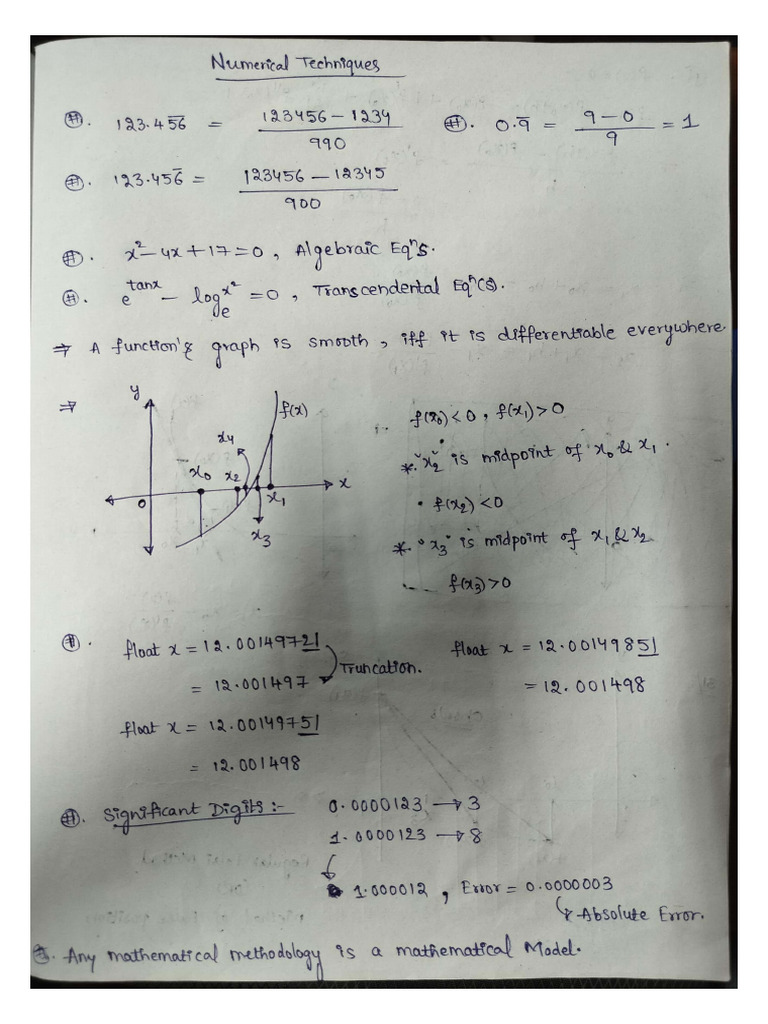 Numerical Techniques
#. 123.45̅6̅ = (123456 – 1234)/990   #. 0.9̅ = (9 – 0)/9 = 1
#. 123.456̅ = (123456 – 12345)/900
#. x² – 4x + 17 = 0 , Algebraic Eqⁿs.
#. e^tanx – log_e^x² = 0 , Transcendental Eqⁿ(s).
⇒ A function's graph is smooth , iff it is differentiable everywhere.
⇒ y f(x) x₄ x₀ x₂ x 0 x₁ x₃
f(x₀) < 0 , f(x₁) > 0
*. "x₂" is midpoint of x₀ & x₁ .
• f(x₂) < 0
*. "x₃" is midpoint of x₁ & x₂
f(x₃) > 0
#. float x = 12.00149721   float x = 12.00149851
= 12.001497 Truncation.   = 12.001498
float x = 12.00149751
= 12.001498
#. Significant Digits :- 0.0000123 → 3
1.0000123 → 8
1.000012 , Error = 0.0000003
↳ Absolute Error.
#. Any mathematical methodology is a mathematical Model.